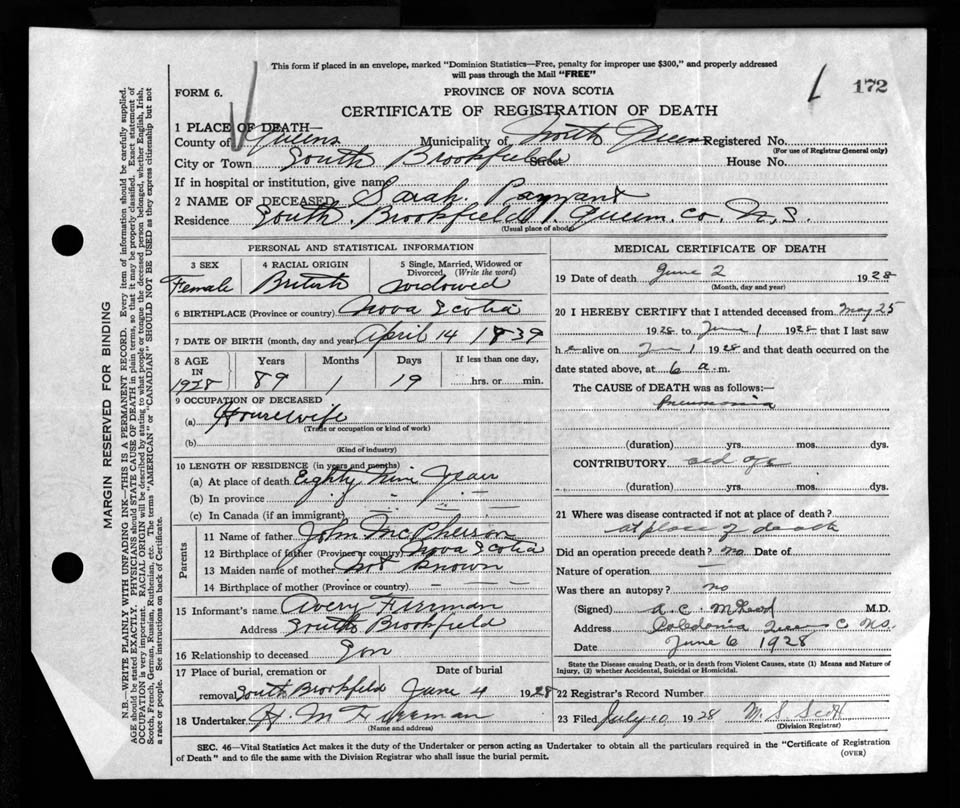 This form if placed in an envelope, marked "Dominion Statistics—Free, penalty for improper use $300," and properly addressed
will pass through the Mail "FREE"
172
FORM 6.
PROVINCE OF NOVA SCOTIA
CERTIFICATE OF REGISTRATION OF DEATH
1 PLACE OF DEATH—
County of Queens Municipality of North Queens Registered No.
(For use of Registrar General only)
City or Town South Brookfield Street House No.
If in hospital or institution, give name
2 NAME OF DECEASED Sarah Payzant
Residence South Brookfield Queens Co. N.S.
(Usual place of abode)
PERSONAL AND STATISTICAL INFORMATION
3 SEX 4 RACIAL ORIGIN 5 Single, Married, Widowed or
Divorced, (Write the word)
Female British Widowed
6 BIRTHPLACE (Province or country) Nova Scotia
7 DATE OF BIRTH (month, day and year) April 14 1839
8 AGE IN Years Months Days If less than one day,
1928 89 1 19 hrs. or min.
9 OCCUPATION OF DECEASED
(a) Housewife
(Trade or occupation or kind of work)
(b)
(Kind of industry)
10 LENGTH OF RESIDENCE (in years and months)
(a) At place of death Eighty Nine Years
(b) In province " " "
(c) In Canada (if an immigrant)
Parents
11 Name of father John McPherson
12 Birthplace of father (Province or country) Nova Scotia
13 Maiden name of mother Not known
14 Birthplace of mother (Province or country) — —
15 Informant's name Avery Freeman
Address South Brookfield
16 Relationship to deceased Son
17 Place of burial, cremation or Date of burial
removal South Brookfield June 4 1928
18 Undertaker H. M Freeman
(Name and address)
MEDICAL CERTIFICATE OF DEATH
19 Date of death June 2 1928
(Month, day and year)
20 I HEREBY CERTIFY that I attended deceased from May 25
1928 to June 1 1928 that I last saw
h e alive on June 1 1928 and that death occurred on the
date stated above, at 6 a. m.
The CAUSE of DEATH was as follows:—
Pneumonia
(duration) yrs. mos. dys.
CONTRIBUTORY old age
(duration) yrs. mos. dys.
21 Where was disease contracted if not at place of death?
at place of death
Did an operation precede death? no Date of
Nature of operation —
Was there an autopsy? no
(Signed) A. C. McLeod M.D.
Address Caledonia Queens C NS.
Date June 6 1928
State the Disease causing Death, or in death from Violent Causes, state (1) Means and Nature of
Injury, (2) whether Accidental, Suicidal or Homicidal.
22 Registrar's Record Number
23 Filed July 10 1928 M. S. Scott
(Division Registrar)
SEC. 46—Vital Statistics Act makes it the duty of the Undertaker or person acting as Undertaker to obtain all the particulars required in the "Certificate of Registration
of Death" and to file the same with the Division Registrar who shall issue the burial permit.
(OVER)
MARGIN RESERVED FOR BINDING
N.B.—WRITE PLAINLY WITH UNFADING INK—THIS IS A PERMANENT RECORD. Every item of information should be carefully supplied.
AGE should be stated EXACTLY. PHYSICIANS should STATE CAUSE OF DEATH in plain terms, so that it may be properly classified. Exact statement of
OCCUPATION is very important. RACIAL ORIGIN will be described by stating to what people or tongue the deceased person belonged, whether English, Irish,
Scotch, French, German, Russian, Ruthenian, etc. The terms "AMERICAN" or "CANADIAN" SHOULD NOT BE USED as they express citizenship but not
a race or people. See instructions on back of Certificate.